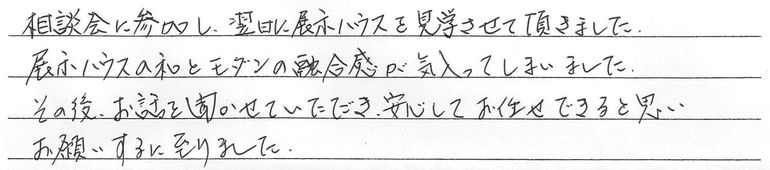 相談会に参加し、翌日に展示ハウスを見学させて頂きました。
展示ハウスの和とモダンの融合感が気入ってしまいました。
その後、お話を聞かせていただき、安心してお任せできると思い
お願いするに至りました。